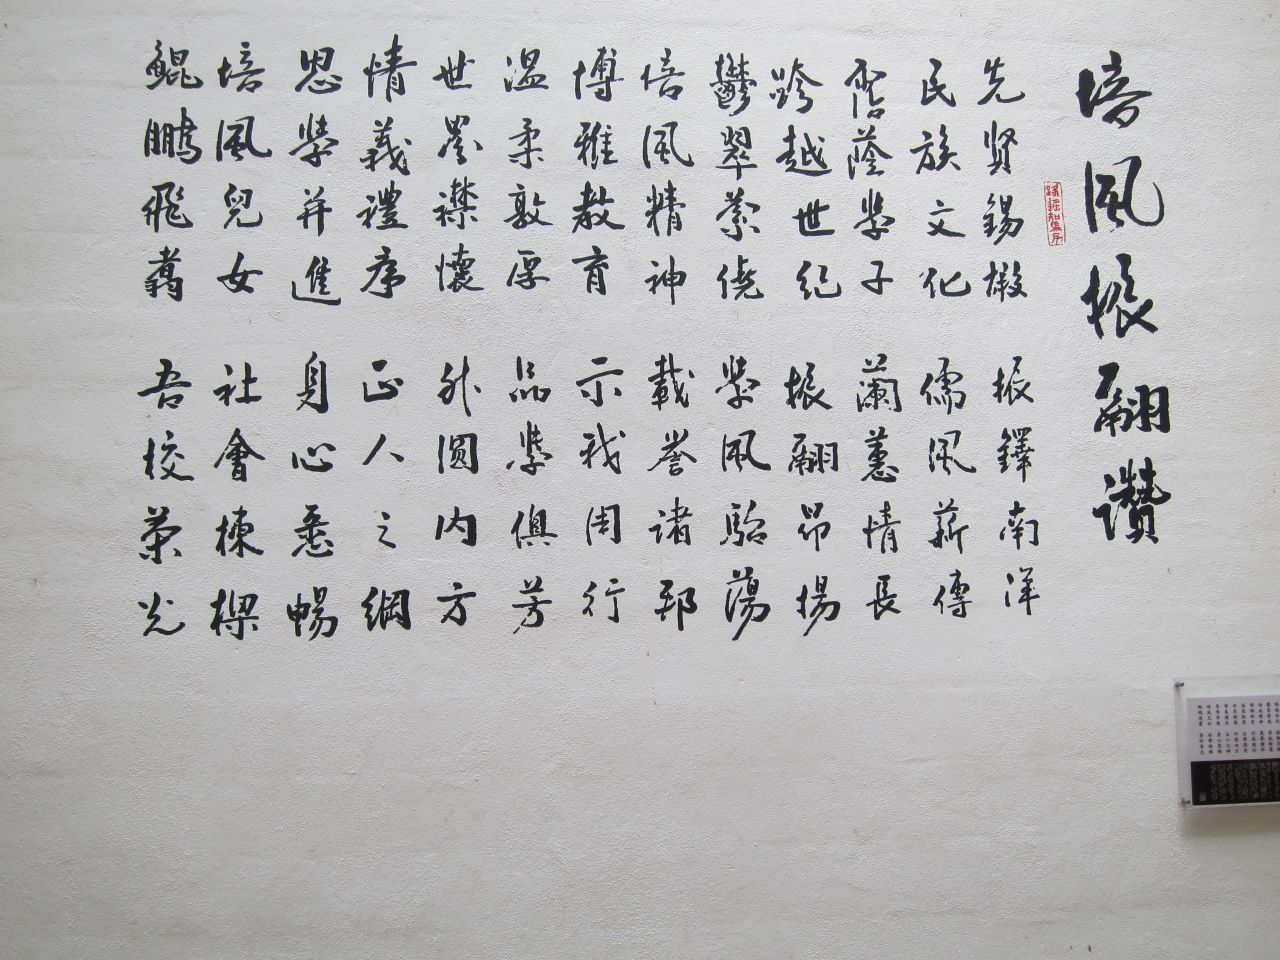 培風振翮讚
先賢錫檄 振鐸南洋
民族文化 儒風薪傳
蔭學子 蘭蕙情長
跨越世紀 振翮昂揚
鬱翠縈繞 學風駘蕩
培風精神 載譽諸邦
博雅教育 示我周行
溫柔敦厚 品學俱芳
世襟懷 外圓內方
情義禮序 正人之綱
思學并進 身心悉暢
培風兒女 社會棟樑
鯤鵬飛翥 吾校榮光